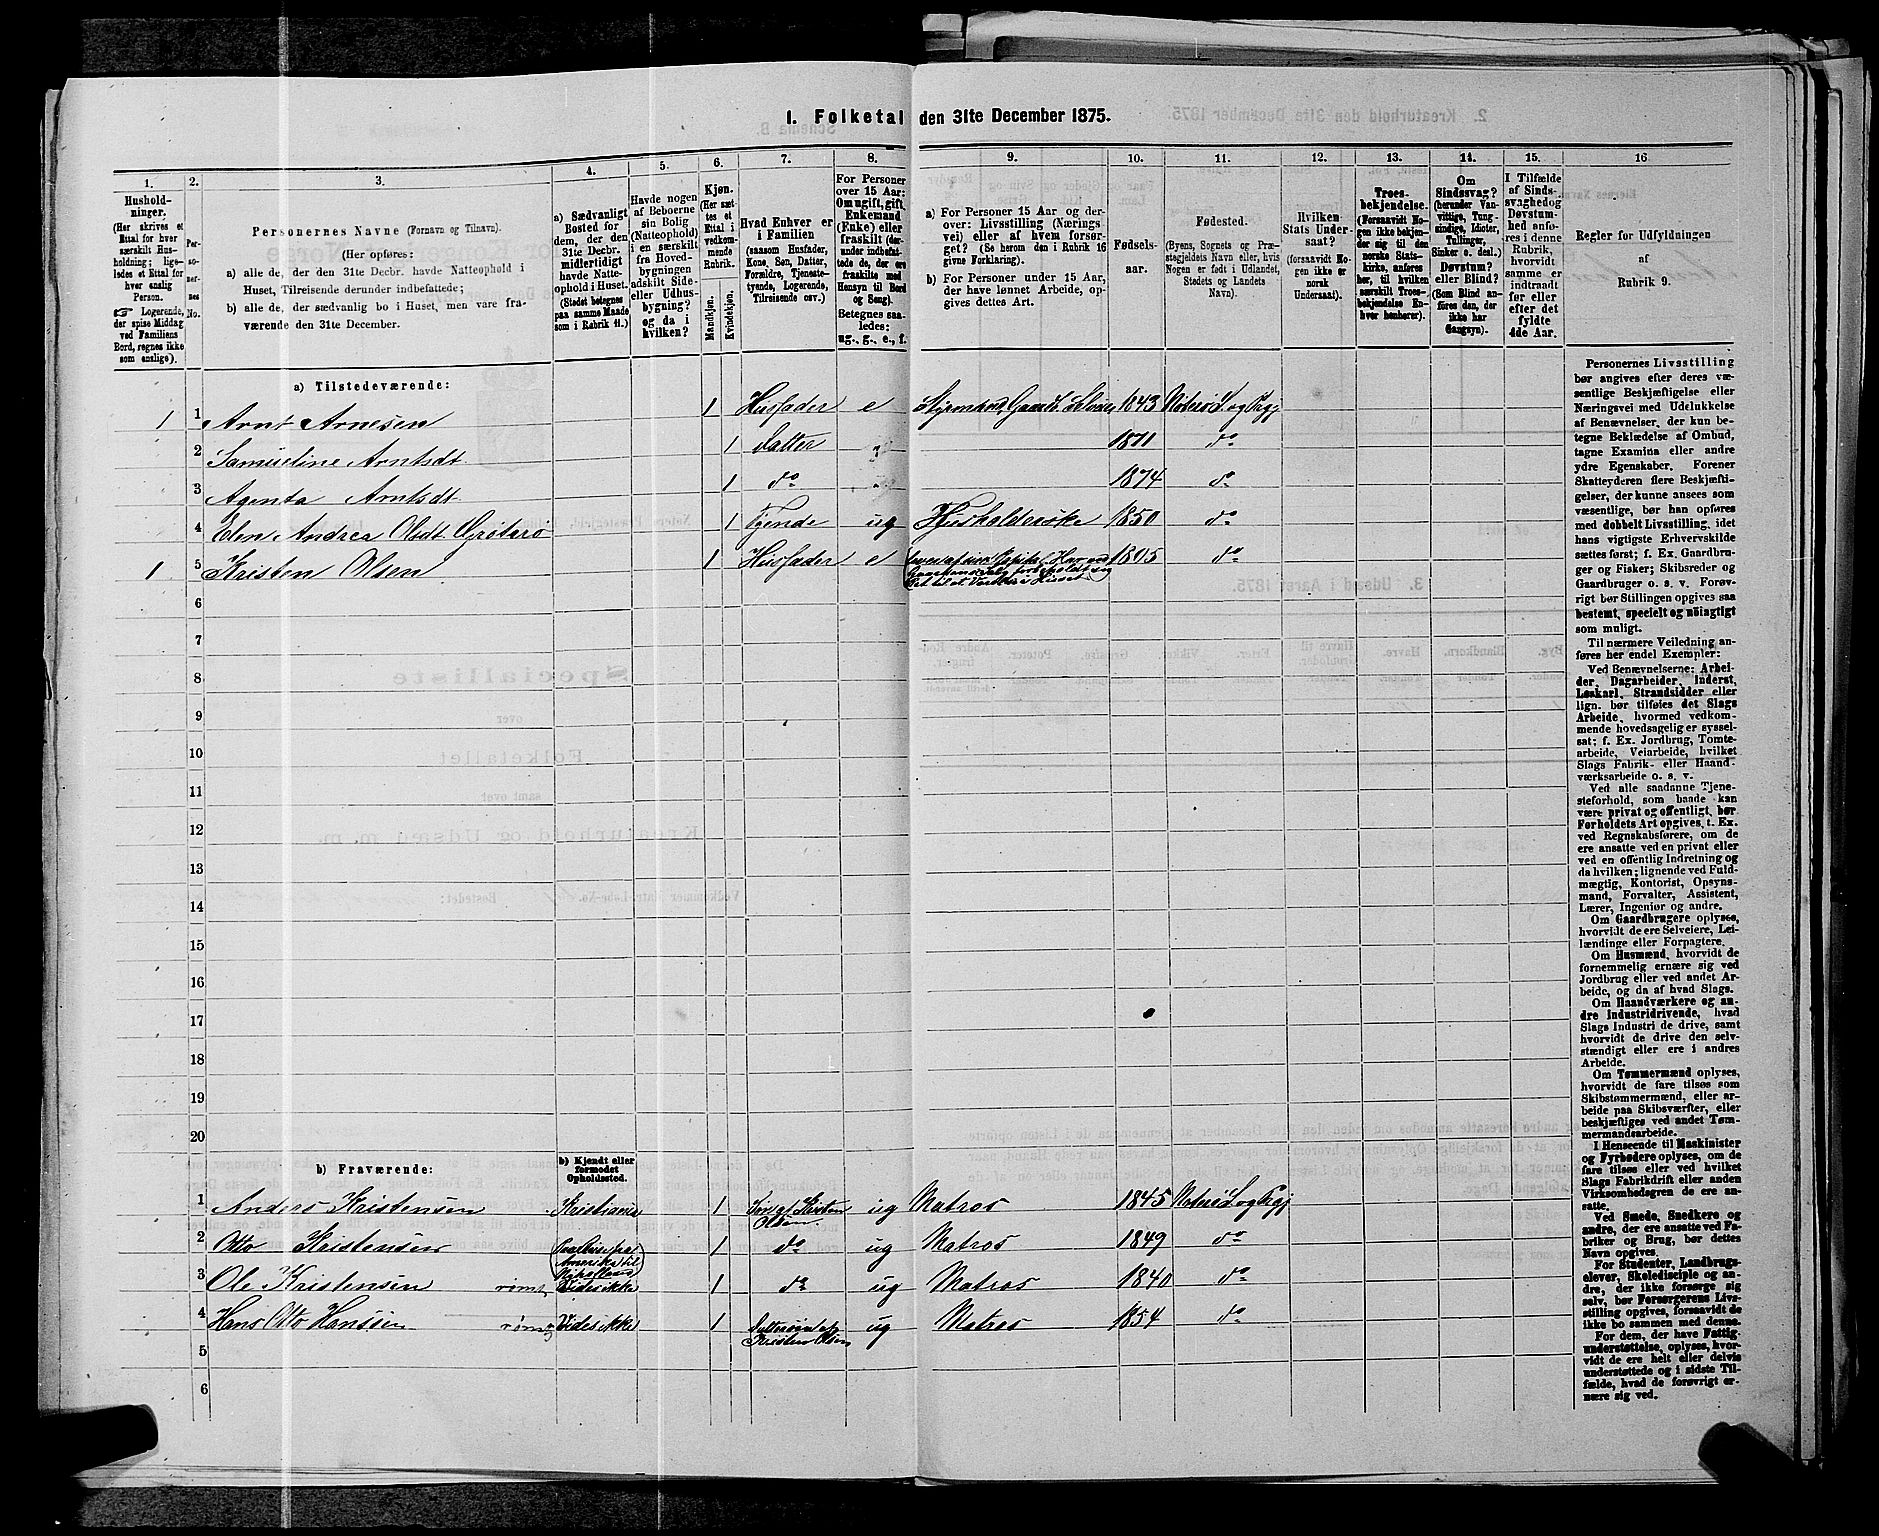 1. Folketal den 31te December 1875.
1. 2. 3. 4. 5. 6. 7. 8. 9. 10. 11. 12. 13. 14. 15. 16
Hushold-
ninger.
(Her skrives et
Ettal for hver
særskilt Hus-
holdning; lige-
ledes et Ettal for
hver enslig
Person.
☞ Logerende,
der spise Middag
ved Familiens
Bord, regnes ikke
som enslige).
Per-
so-
ner-
nes
No.
Personernes Navne (Fornavn og Tilnavn).
(Her opføres:
a) alle de, der den 31te Decbr. havde Natteophold i
Huset, Tilreisende derunder indbefattede;
b) alle de, der sædvanlig bo i Huset, men vare fra-
værende den 31te December.
a) Sædvanligt
Bosted for
dem, der den
31te Decbr.
midlertidigt
havde Natte-
ophold i Huset.
(Stedet betegnes
paa samme Maade
som i Rubrik 11.)
Havde nogen
af Beboerne
sin Bolig
(Natteophold)
i en særskilt
fra Hoved-
bygningen
adskilt Side-
eller Udhus-
bygning?
og da i
hvilken?
Kjøn.
(Her sæt-
tes et
Ettal i
vedkom-
mende
Rubrik.
Mandkjøn.
Kvindekjøn.
Hvad Enhver er
i Familien
(saasom Husfader,
Kone, Søn, Datter,
Forældre, Tjeneste-
tyende, Logerende,
Tilreisende osv.)
For Personer
over 15 Aar:
Om ugift, gift,
Enkemand
(Enke) eller
fraskilt (der-
under indbefat-
tede de, der ere
fraskilte med
Hensyn til Bord
og Seng).
Betegnes saa-
ledes:
ug., g., e., f.
a) For Personer 15 Aar og der-
over: Livsstilling (Nærings
vei) eller af hvem forsør-
get? (Se herom den i Rubrik 16
givne Forklaring).
b) For Personer under 15 Aar,
der have lønnet Arbeide, op-
gives dettes Art.
Fødsels-
aar.
Fødested.
(Byens, Sognets og Præ-
stegjeldets Navn eller, hvis
Nogen er født i Udlandet,
Stedets og Landets
Navn).
Hvilken
Stats Under-
saat?
(forsaavidt No-
gen ikke er
norsk
Undersaat).
Troes-
bekjendelse.
(Forsaavidt No-
gen ikke bekjen-
der sig til den
norske Stats-
kirke, anføres
her, til hvilken
særskilt Troes-
bekjendelse En-
hver henhører).
Om
Sindssvag?
(herunder Van-
vittige, Tung-
sindige, Idioter,
Tullinger,
Sinker o. desl.)
Døvstum?
eller Blind?
(Som Blind an-
føres den, der
ikke har
Gangsyn).
I Tilfælde
af Sinds-
svaghed og
Døvstum-
hed anfø-
res i denne
Rubrik,
hvorvidt
samme er
indtraadt
før eller
efter det
fyldte
4de Aar.
Regler for Udfyldningen
af
Rubrik 9.
a) Tilstedeværende:
1 1 Arnt Arnesen 1 Husfader e 1843 Nøterø S. og Prgj
2 Samueline Arntsdt 1 Datter 1871 do
3 Agenta Arntsdt 1 do 1874 do
4 Elen Andrea Olsdt 1 Tyende ug Husholderske 1850 do
1 5 Kristen Olsen 1 Husfader e 1805 do
6
7
8
9
10
11
12
13
14
15
16
17
18
19
20
b) Fraværende:
b) Kjendt eller
formodet
Opholdssted.
1 Anders Kristensen Kristiania 1 Søn af Kristen Olsen ug Matros 1845 Nøterø S. og Prgj
2 Otto Kristensen Paa Reise fra Amerika til 1 do ug Matros 1849 do
3 Ole Kristensen rømt Vides ikke 1 do ug Matros 1840 do
4 Hans Otto Hanssen rømt Vides ikke 1 Dattersøn af Kristen Olsen ug Matros 1854 do
5
6
Personernes Livsstilling
bør angives efter deres væ-
sentlige Beskjæftigelse eller
Næringsvei med Udelukkelse
af Benævnelser, der kun be-
tegne Beklædelse af Ombud,
tagne Examina eller andre
ydre Egenskaber. Forener
Skatteyderen flere Beskjæfti-
gelser, der kunne ansees som
væsentlige, bør han opføres
med dobbelt Livsstilling, idet
hans vigtigste Erhvervskilde
sættes først; f. Ex. Gaardbru-
ger og Fisker; Skibsreder og
Gaardbruger o. s. v. Forøv-
rigt bør Stillingen opgives saa
bestemt, specielt og nöiagtigt
som muligt.
Til nærmere Veiledning an-
føres her endel Exempler:
Ved Benævnelserne: Arbei-
der, Dagarbeider, Inderst,
Løskarl, Strandsidder eller
lign. bør tilføies det Slags
Arbeide, hvormed vedkom-
mende hovedsagelig er syssel-
sat; f. Ex. Jordbrug, Tomte-
arbeide, Veiarbeide, hvilket
Slags Fabrik- eller Haand-
værksarbeide o. s. v.
Ved alle saadanne Tjene-
steforhold, som baade kan
være privat og offentligt, bør
Forholdets Art opgives, t. Ex.
ved Regnskabsførere, om de
ere ansatte ved en privat eller
ved en offentlig Indretning og
da hvilken; lignende ved Fuld-
mægtig, Kontorist, Opsyns-
mand, Forvalter, Assistent,
Lærer, Ingeniør og andre.
Om Gaardbrugere oplyses,
hvorvidt de ere Selveiere, Lei-
lændinge eller Forpagtere.
Om Husmænd, hvorvidt de
fornemmelig ernære sig ved
Jordbrug eller ved andet Ar-
beide, og da af hvad Slags.
Om Haandværkere og an-
dre Industridrivende, hvad
Slags Industri de drive, samt
hvorvidt de drive den selv-
stændigt eller ere i andres
Arbeide.
Om Tømmermænd oplyses,
hvorvidt de fare tilsøs som
Skibstømmermænd, eller ar-
beide paa Skibsværfter, eller
beskjæftiges ved andet Tøm-
mermandsarbeide.
I Henseende til Maskinister
og Fyrbødere oplyses, om de
fare tilsøs eller ved hvilket
Slags Fabrikdrift eller anden
Virksomhedsgren de ere an-
satte.
Ved Smede, Snedkere og
andre, der ere ansatte ved Fa-
briker og Brug, bør dettes
Navn opgives.
For Studenter, Landbrugs-
elever, Skoledisciple og an-
dre, der ikke forsørge sig
selv, bør Forsørgerens Livs-
stilling opgives, forsaavidt de
ikke bo sammen med denne.
For dem, der have Fattig-
understøttelse, oplyses, hvor-
vidt de ere helt eller delvis
understøttede og i sidste Til-
fælde, hvad de forøvrigt er-
nære sig ved.